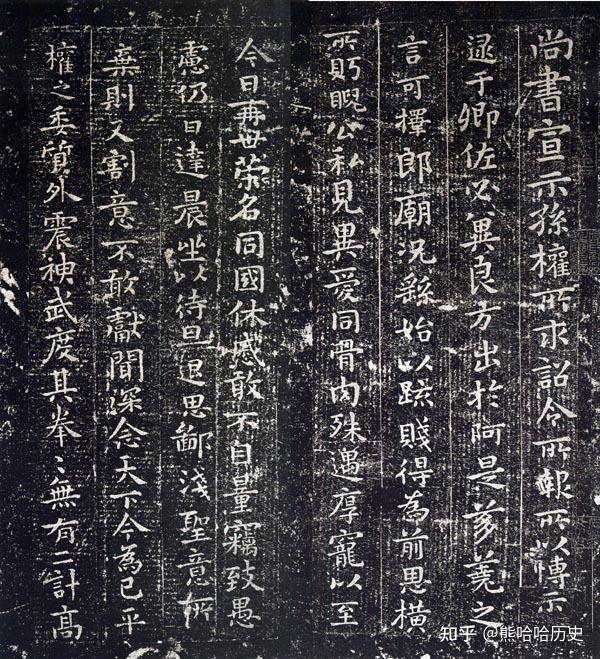 尚書宣示孫權所求詔令所報所以博示
逮于卿佐必冀良方出於阿是芻蕘之
言可擇郎廟況繇始以疏賤得為前恩橫
所盱睨公私見異愛同骨肉殊遇厚寵以至
今日再世榮名同國休慼敢不自量竊致愚
慮仍日達晨坐以待旦退思鄙淺聖意所
棄則又割意不敢獻聞深念天下今為已平
權之委質外震神武度其拳〻無有二計高
知乎 @熊哈哈历史